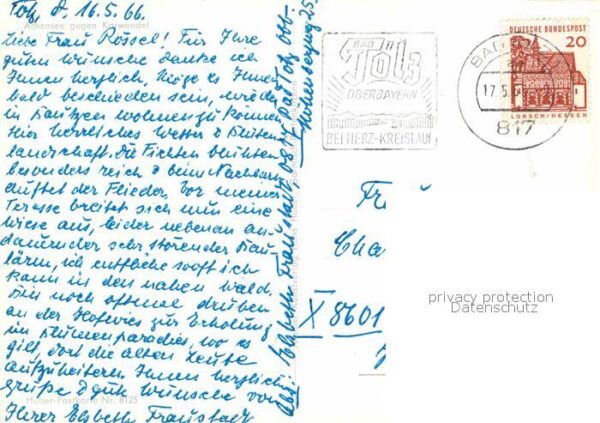 Tölz, d. 16.5.66.
Achensee gegen Karwendel
Liebe Frau Rössel! Für Ihre
guten Wünsche danke ich
Ihnen herzlich. Möge es Ihnen
bald beschieden sein, wieder
in Bautzen wohnen zu können
Hier herrliches Wetter & Blüten
landschaft. Die Fichten blühten
besonders reich & beim Nachbarn
duftet der Flieder. Vor meiner
Terasse breitet sich nun eine
Wiese aus, leider nebenan an-
dauernder sehr störender Bau
lärm, ich entfliehe sooft ich
kann in den nahen Wald.
Bin noch oftmal drüben
an der Hofwies zur Erholung
im Blumenparadies, wo es
gilt, dort die alten Leute
aufzuheitern Ihnen herzlich
grüße & gute Wünsche von
Ihrer Elsbeth Fraustadt
Huber-Postkarte Nr. 8125
Abs.: Elsbeth Fraustadt, 0817 Bad Tölz Obb.
BAD
Tölz
OBERBAYERN
BEI HERZ-KREISLAUF
BAD
17.5.
817
DEUTSCHE BUNDESPOST
20
LORSCH/HESSEN
X 8601
privacy protection
Datenschutz